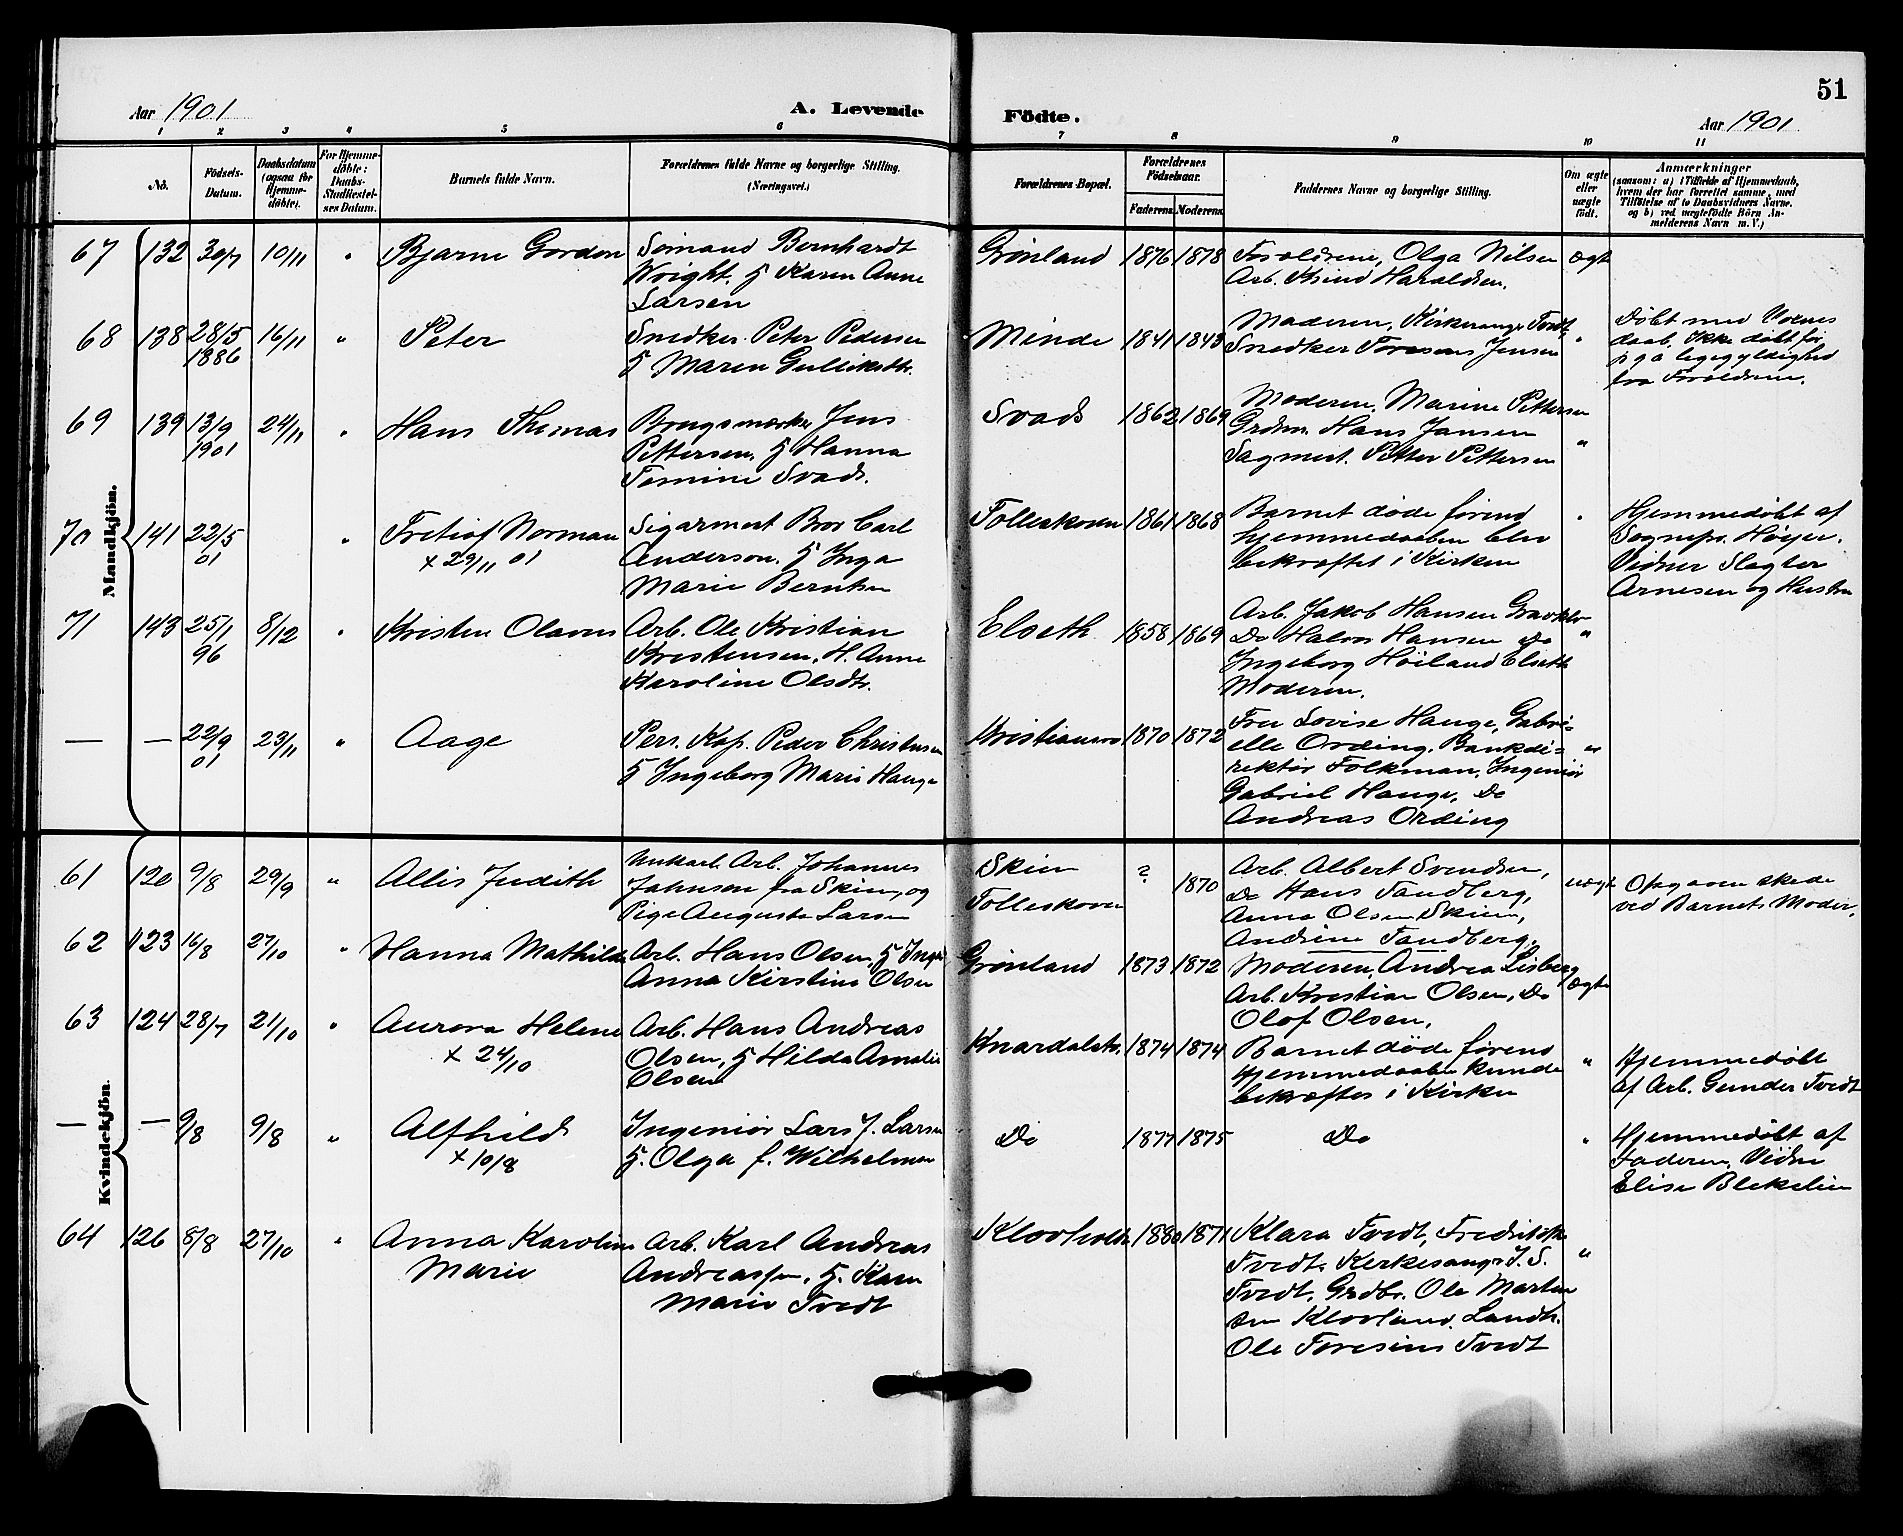 51
Aar 1901
A. Levende
Födte.
Aar 1901
1 2 3 4 5 6 7 8 9 10 11
No.
Födsels-
Datum.
Daabsdatum
(ogsaa for
Hjemme-
döbte).
For Hjemme-
döbte:
Daabs-
Stadfæstel-
ses Datum.
Barnets fulde Navn.
Forældrenes fulde Navne og borgerlige Stilling.
(Næringsvei.)
Forældrenes Bopæl.
Forældrenes
Födselsaar.
Faderens. Moderens.
Faddernes Navne og borgerlige Stilling.
Om ægte
eller
uægte
födt.
Anmærkninger
(saasom: a) i Tilfælde af Hjemmedaab,
hvem der har forrettet samme, med
Tilföielse af to Daabsvidners Navne.
og b) ved uægtefödte Börn An-
melderens Navn m. V.)
Mandkjön.
67 132 30/7 10/11 " Bjarne Gordon
Sömand Bernhardt
Wright. H Karen Anne
Larsen
Grönland 1876 1878
Forældrene, Olga Nilsen
Arb. Haraldsen.
Ægt
68 138 28/5 16/11 " Peter
1886
Snedker Peter Pedersen
H Maren Gulliksdtr.
Minde 1841 1843
Moderen, Kirkesanger Tvedt,
Snedker Jensen
"
Döbt med Voxnes
daab. Ikke döbt för
pga ligegyldighed
fra Forældrene.
69 139 13/9 24/11 " Hans Thomas
1901
Brugsmester Jens
Pettersen, H Hanna
Svads.
Svads 1862 1869
Moderen, Marine Pettersen
Grdm. Hans Jansen
Sagmest. Petter Pettersen
"
70 141 22/5 " Fretiof Norman
01
x 29/11 01
Sigarmest Carl
Anderson. H Inga
Marie Berntsen
Folleskoven 1861 1868
Barnet döde förend
hjemmedaaben blev
bekræftet i Kirken
"
Hjemmedöbt af
Sognepr. Höyer.
Vidner Slagter
Arnesen og Hustru
71 143 25/1 8/12 " Kristen Olavus
96
Arb. Ole Kristian
Kristensen, H. Anne
Karoline Olsdtr.
Elseth 1858 1869
Arb. Jakob Hansen
Do Halvor Hansen do
Ingeborg Höiland Elseth
Moderen.
"
— — 22/9 23/11 " Aage
01
Pers. Kap. Peder Christensen
H Ingeborg Marie Hauge
1870 1872
Fru Lovise Hauge, Gabri-
elle Ording, Bankdi=
rektör Folkman, Ingeniör
Gabriel Hauge, Do
Andreas Ording
"
Kvindekjön.
61 120 9/8 29/9 " Allis Judith
Unkarl Arb. Johannes
Johnsen fra Skien, og
Pige Augusta Larsen
Skien
Folleskoven
? 1870
Arb. Albert Svendsen,
Do Hans Tandberg,
Anna Olsen Skien,
Andrine Tandberg.
uægt
Opgaven skede
ved Barnets Moder.
62 123 16/8 27/10 " Hanna Mathilde
Arb. Hans Olsen, H
Anna Kirstine Olsen
Grönland 1873 1872
Moderen, Andrea Lisberg
Arb. Kristian Olsen, Do
Olof Olsen.
Ægte
63 124 28/7 21/10 " Aurora Helene
x 24/10
Arb. Hans Andreas
Olsen, H Hilda Amalie
Olsen
Knardalstr. 1874 1874
Barnet döde förend
hjemmedaaben kunde
bekræftes i Kirken
"
Hjemmedöbt
af Arb. Gunder Tvedt
— — 9/8 9/8 " Alfhild
x 10/8
Ingeniör Lars J. Larsen
H. Olga f. Wilhelmsen
Do 1877 1875 Do
"
Hjemmedöbt af
Faderen, Vidne
Elise Blekelien
64 126 8/8 27/10 " Anna Karoline
Marie
Arb. Karl Andreas
Andreassen, H. Karen
Marie Tvedt
Klovholt 1880 1871
Klara Tvedt, Fredrikke
Tvedt, Kirkesanger J. S.
Tvedt, Grdbr. Ole Martin
sen Klovland, Landh.
Ole Tvedt
"